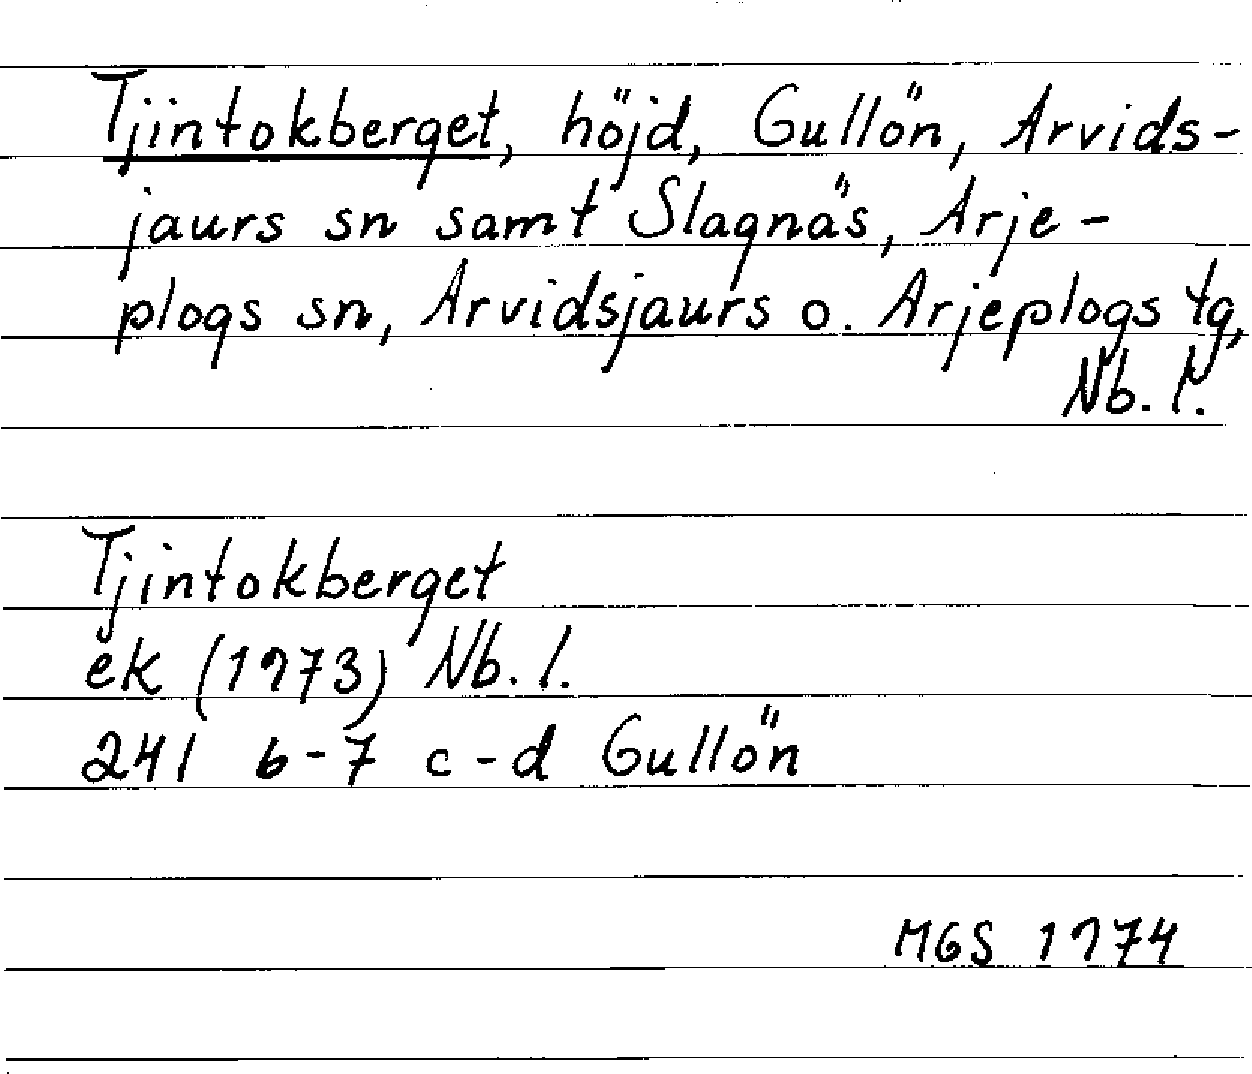 Tjintokberget, höjd, Gullön, Arvids-
jaurs sn samt Slagnäs, Arje-
plogs sn, Arvidsjaurs o. Arjeplogs tg,
Nb. l.
Tjintokberget
ek (1973) Nb. l.
24I 6-7 c-d Gullön
MGS 1974